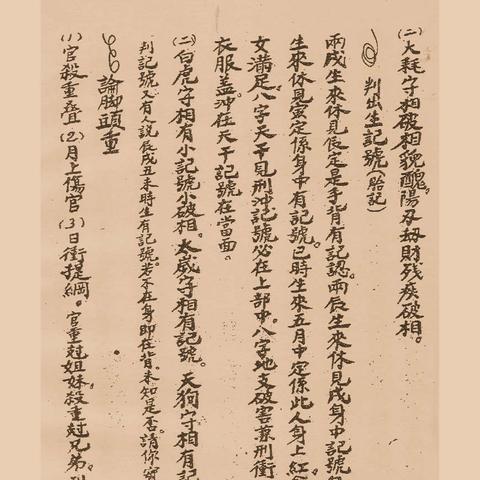 (二)大耗守相破相貌醜。陽刃刼財残疾破相。
判出生記號(胎記)
兩戌生來休見辰定是手背有記認。兩辰生來休見戌身中記號
生來休見蛮定係身中有記號。巳時生來五月中定係此人身上紅
女滿足。八字天干見刑沖記號必在上部中。八字地支破害兼刑衝
衣服盖。沖在天干記號在當面。
(二)白虎守相有小記號小破相。太歲守相有記號。天狗守相有記
判記號又有人說辰戌丑未時生有記號。若不在身即在背。未知是否。請你
論脚頭重
(1)官殺重叠(2)月上傷官(3)日衝提綱。官重尅姐妹。殺重尅兄弟。